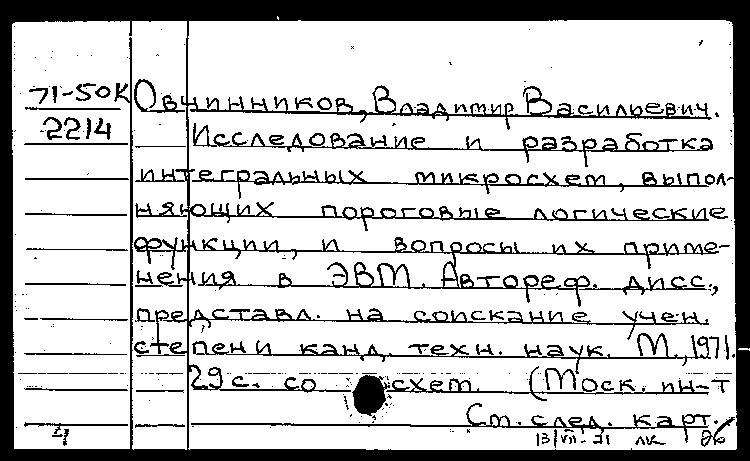 71-50К Овчинников, Владимир Васильевич.
2214 Исследование и разработка
интегральных микросхем, выпол-
няющих пороговые логические
функции, и вопросы их приме-
нения в ЭВМ. Автореф. дисс.,
представл. на соискание учен.
степени канд. техн. наук. М., 1971.
29 с. со схем. (Моск. ин-т
См. след. карт.
4 13/VII-71 лк